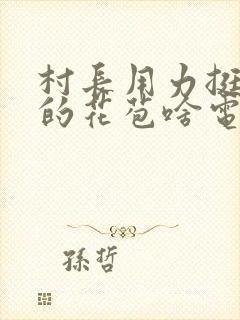 村長用力挺
的花苞啥電
孫哲